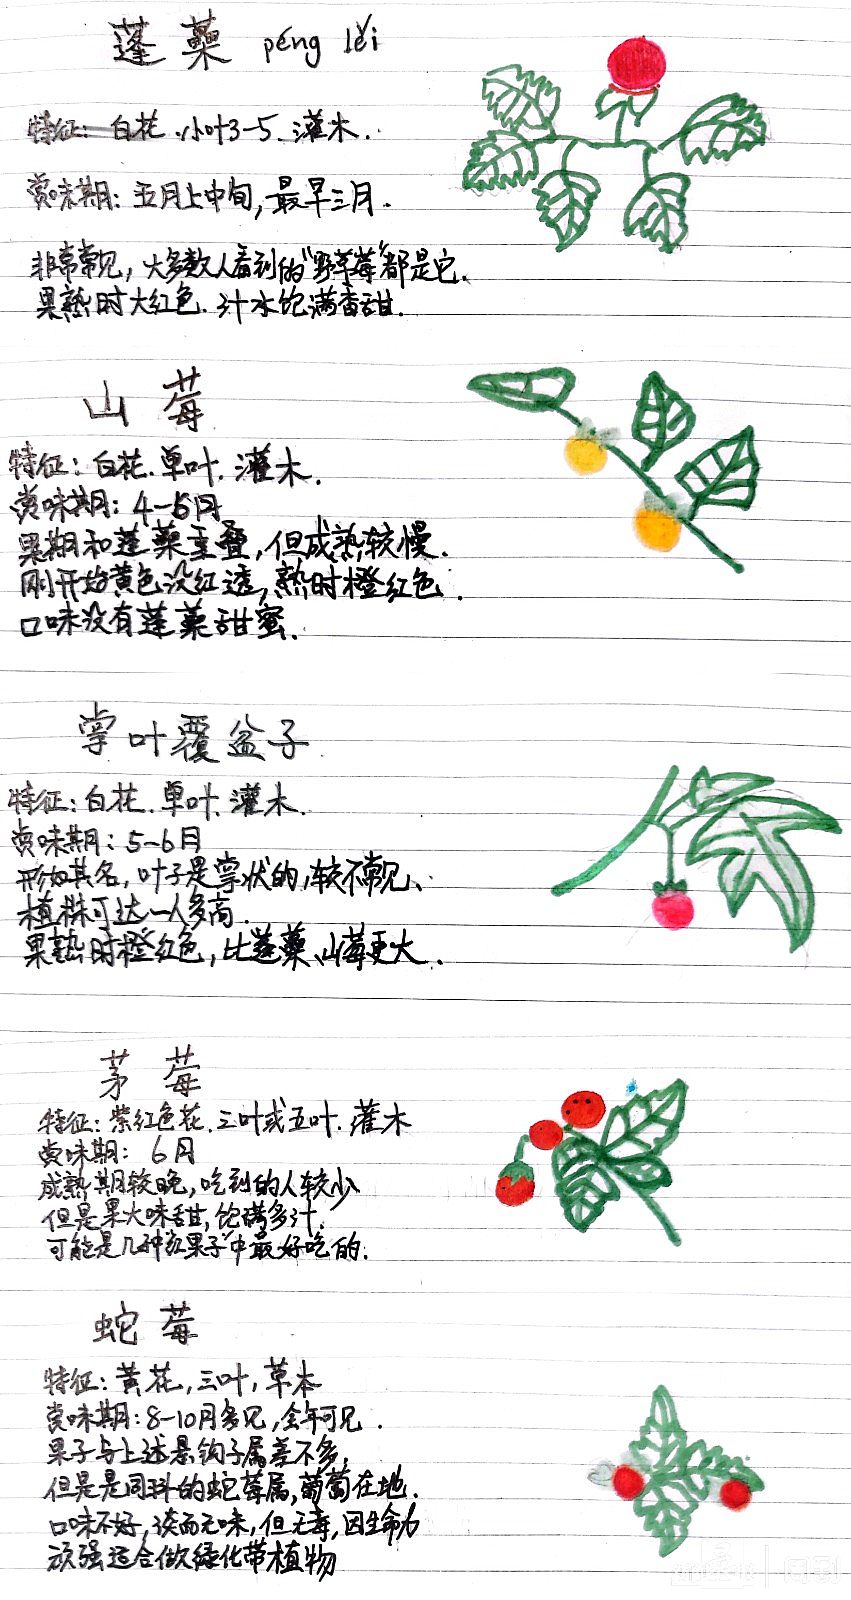 蓬蘽 péng lěi
特征：白花.小叶3-5.灌木.
赏味期：五月上中旬,最早三月.
非常常见,大多数人看到的"野草莓"都是它.
果熟时大红色.汁水饱满香甜.
山莓
特征：白花.单叶.灌木.
赏味期：4-5月
果期和蓬蘽重叠,但成熟较慢.
刚开始黄色没红透,熟时橙红色.
口味没有蓬蘽甜蜜.
掌叶覆盆子
特征：白花.单叶.灌木.
赏味期：5-6月
形如其名,叶子是掌状的,较不常见、
植株可达一人多高.
果熟时橙红色,比蓬蘽、山莓更大.
茅莓
特征：紫红色花.三叶或五叶.灌木
赏味期：6月
成熟期较晚,吃到的人较少
但是果大味甜,饱满多汁.
可能是几种"红果子"中最好吃的.
蛇莓
特征：黄花,三叶,草本
赏味期：8-10月多见,全年可见.
果子与上述悬钩子属差不多,
但是是同科的蛇莓属,葡萄在地.
口味不好,淡而无味,但无毒,因生命力
顽强适合做绿化带植物